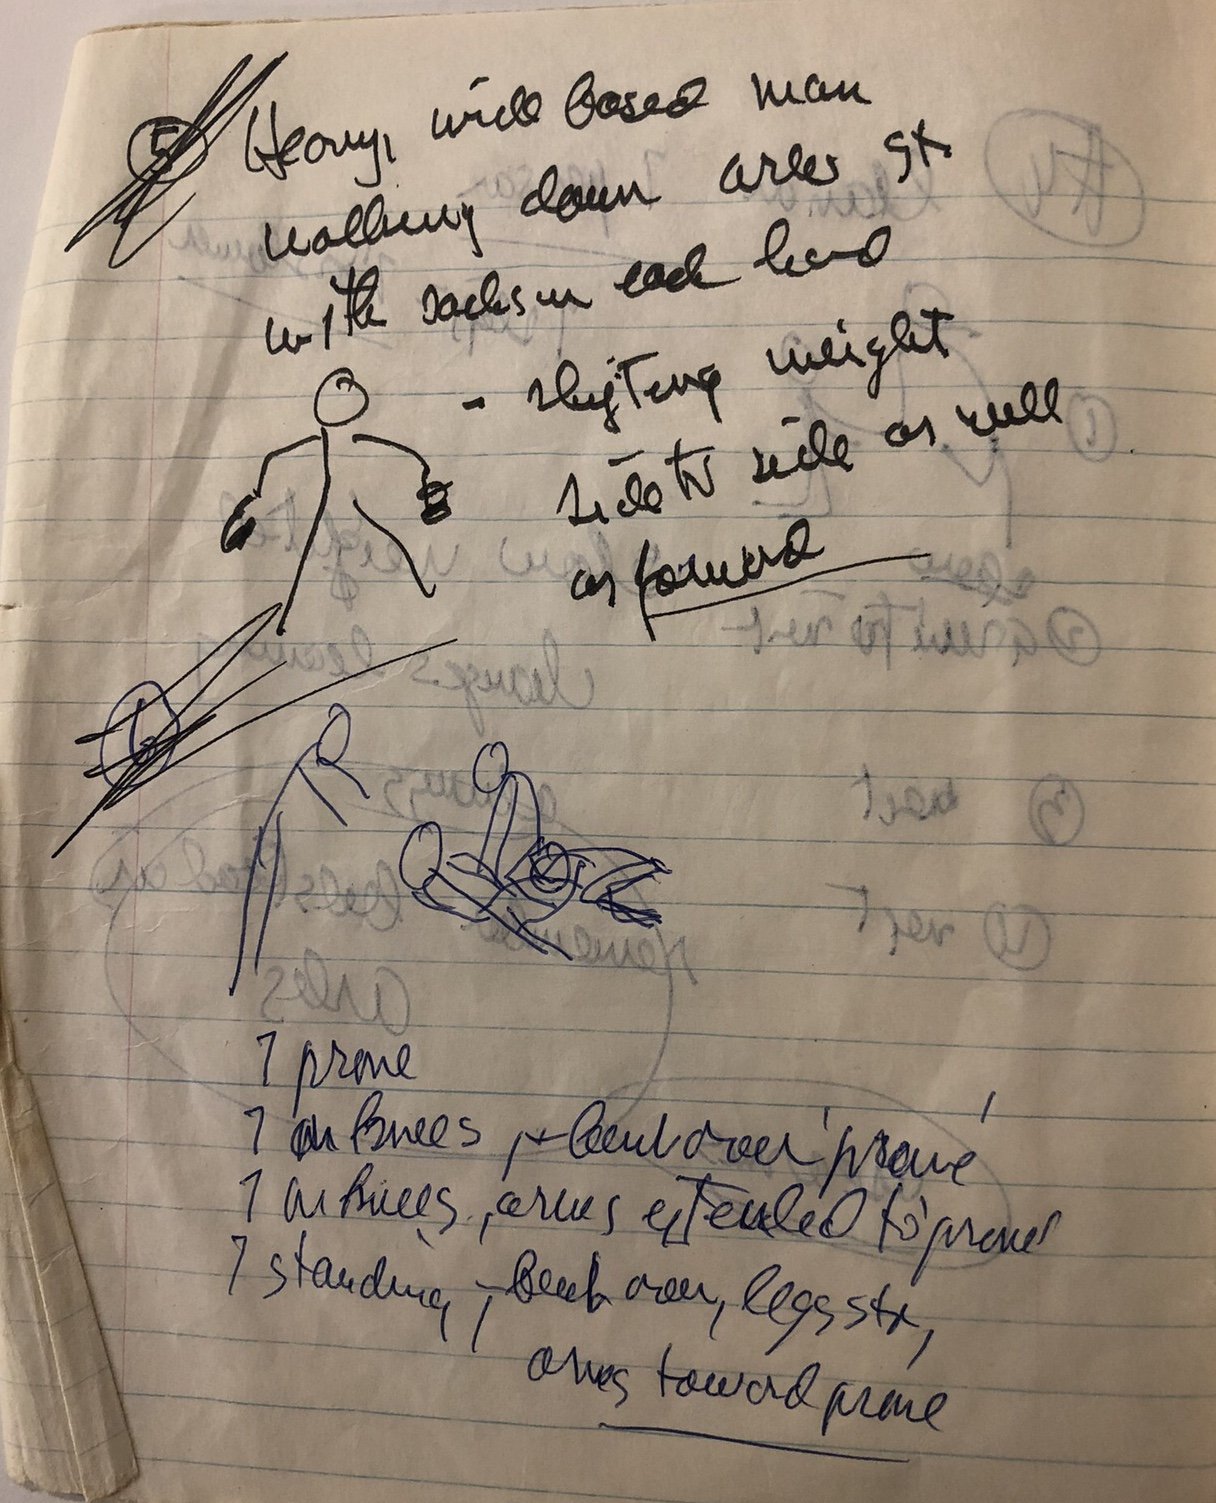 5 Heavy, wide based man
walking down arles st.
with sacks in each hand
- shifting weight
side to side as well
as forward
6
1 prone
1 on knees, + bent over 'prone'
1 on knees, arms extended to 'prone'
1 standing, - bent over, legs str,
arms toward prone